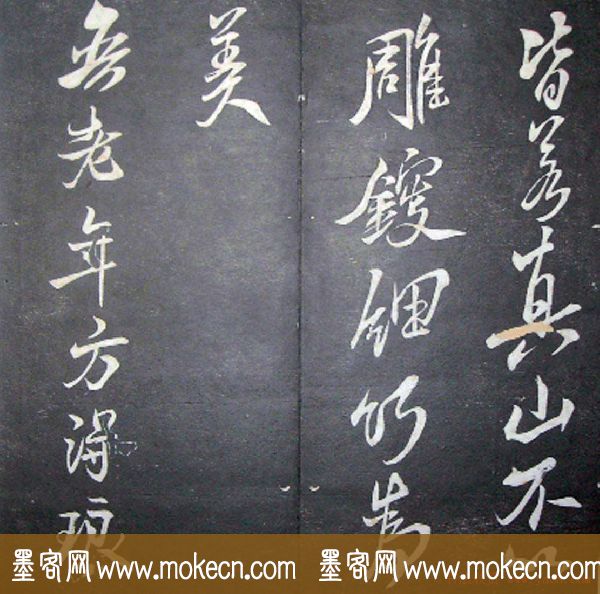 皆若真山不
雕鎪鈿飾為
美
吾老年方得琅
墨客网 www.mokecn.com
墨客网 www.mokecn.com